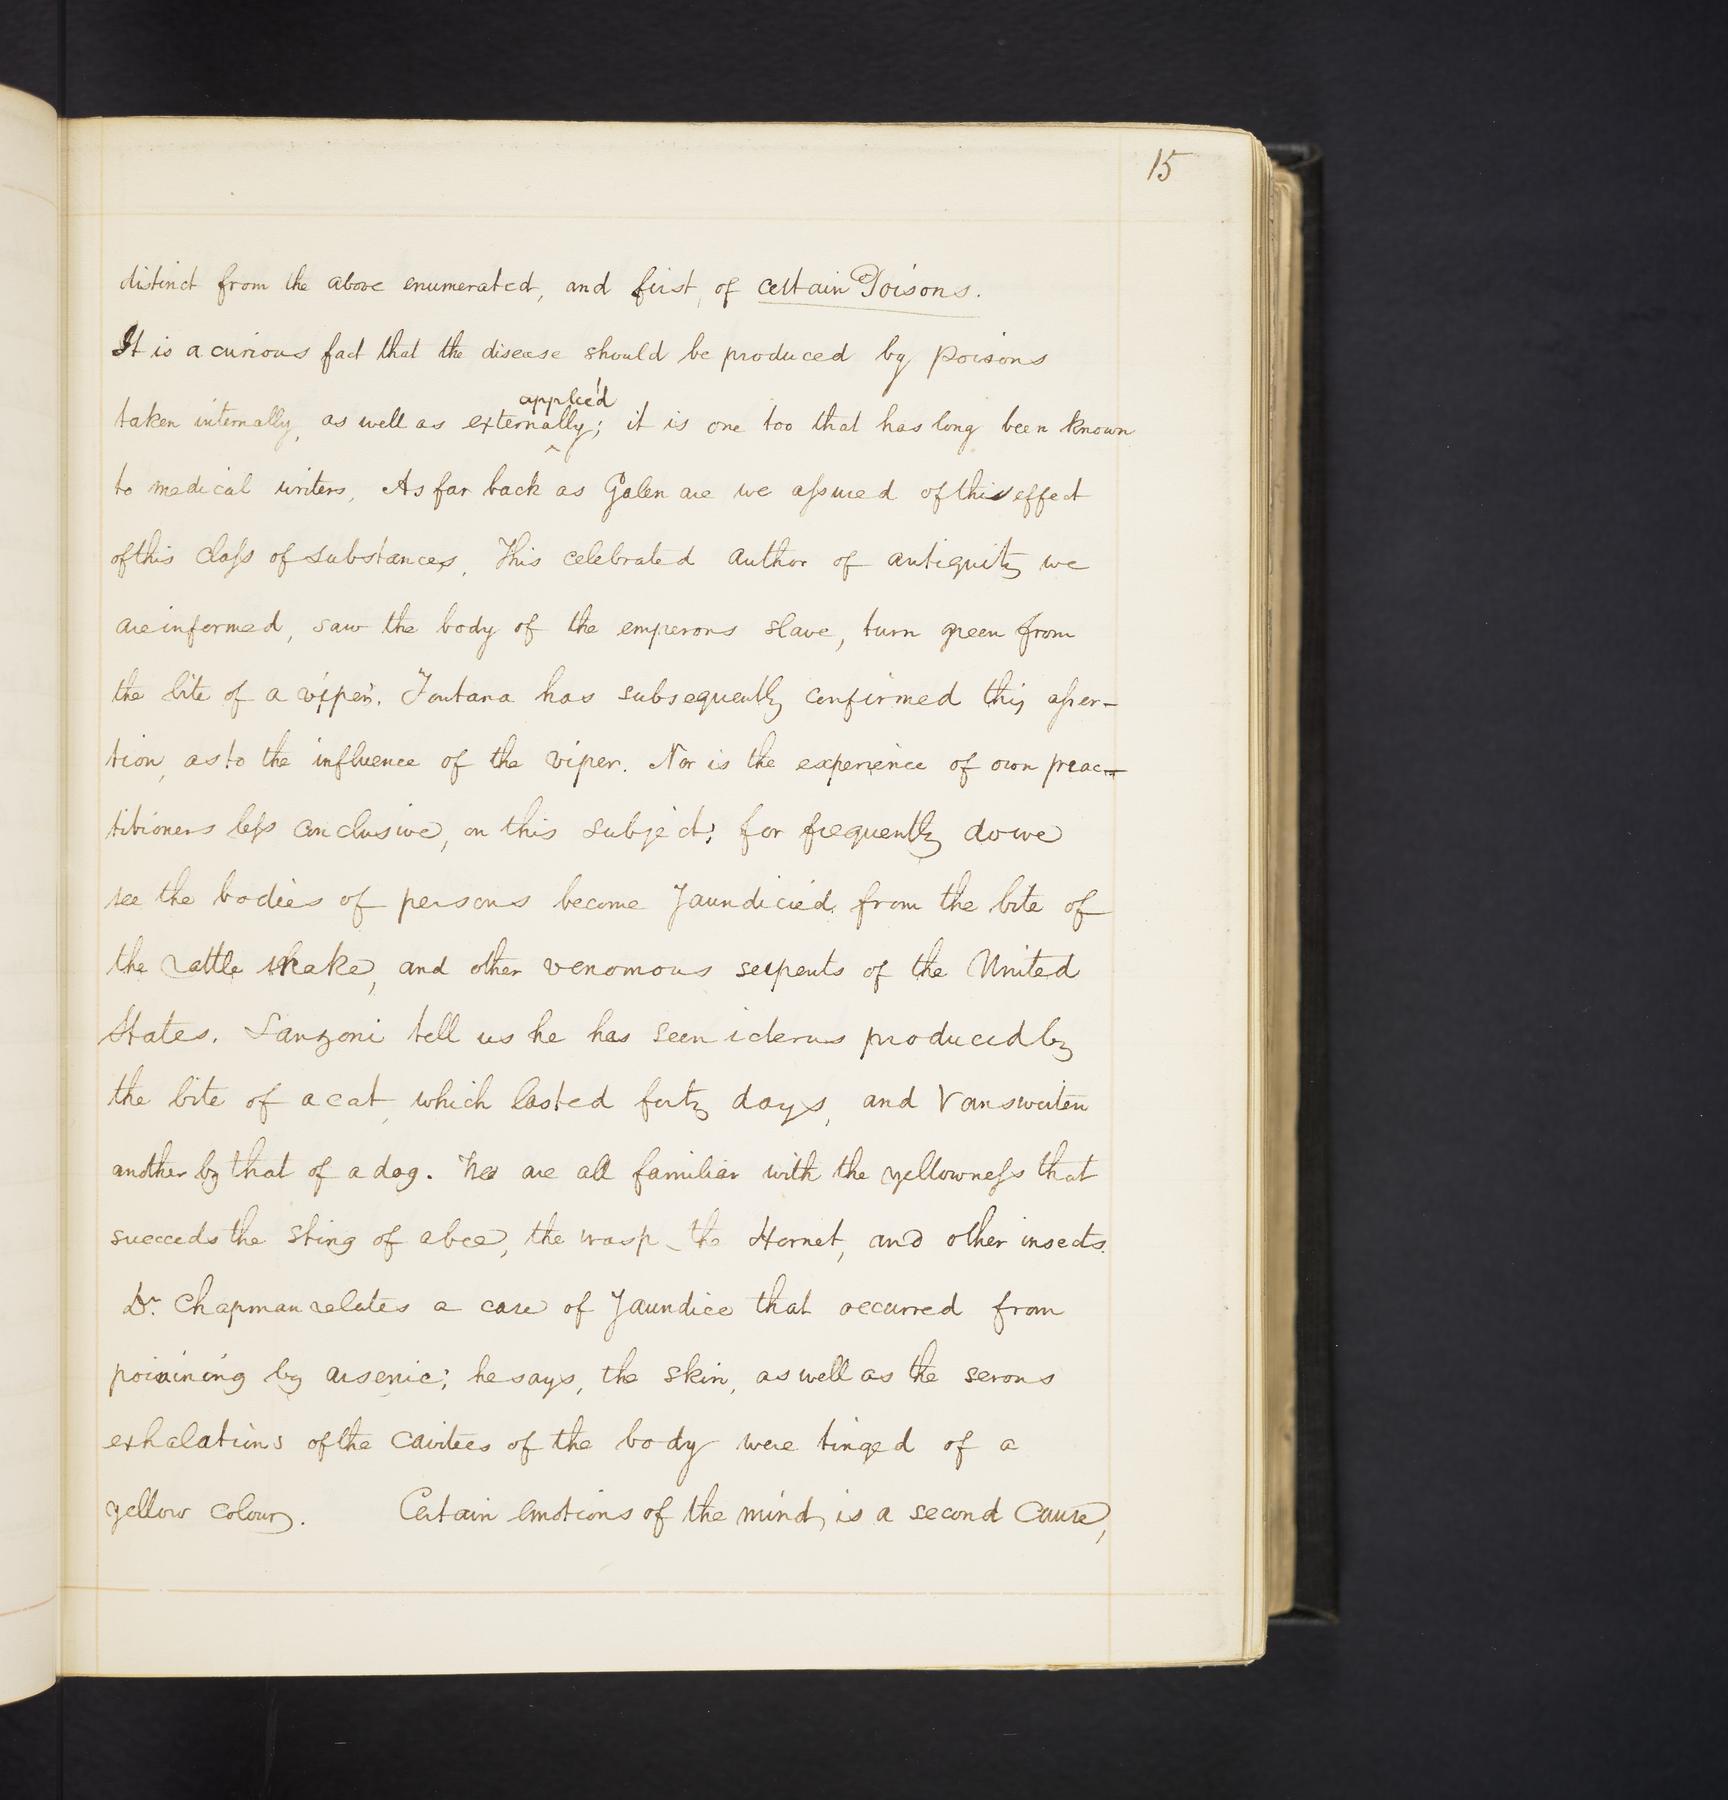 15
distinct from the above enumerated, and first, of certain Poisons.
It is a curious fact that the disease should be produced by poisons
applied
taken internally, as well as externally; it is one too that has long been known
to medical writers. As far back as Galen are we assured of this effect
of this class of substances. This celebrated author of antiquity we
are informed, saw the body of the emperors slave, turn green from
the bite of a viper. Fontana has subsequently confirmed this asser-
tion, as to the influence of the viper. Nor is the experience of own prac-
titioners less conclusive, on this subject; for frequently do we
see the bodies of persons become Jaundicied from the bite of
the rattle snake, and other venomous serpents of the United
States. Lanzoni tell us he has seen icterus produced by
the bite of a cat, which lasted forty days, and Vansweiten
another by that of a dog. We are all familiar with the yellowness that
succeeds the sting of a bee, the wasp, the Hornet, and other insects.
Dr. Chapman relates a case of Jaundice that occurred from
poisining by arsenic; he says, the skin, as well as the serous
exhalations of the cavitees of the body were tinged of a
yellow colour. Certain emotions of the mind, is a second Cause,